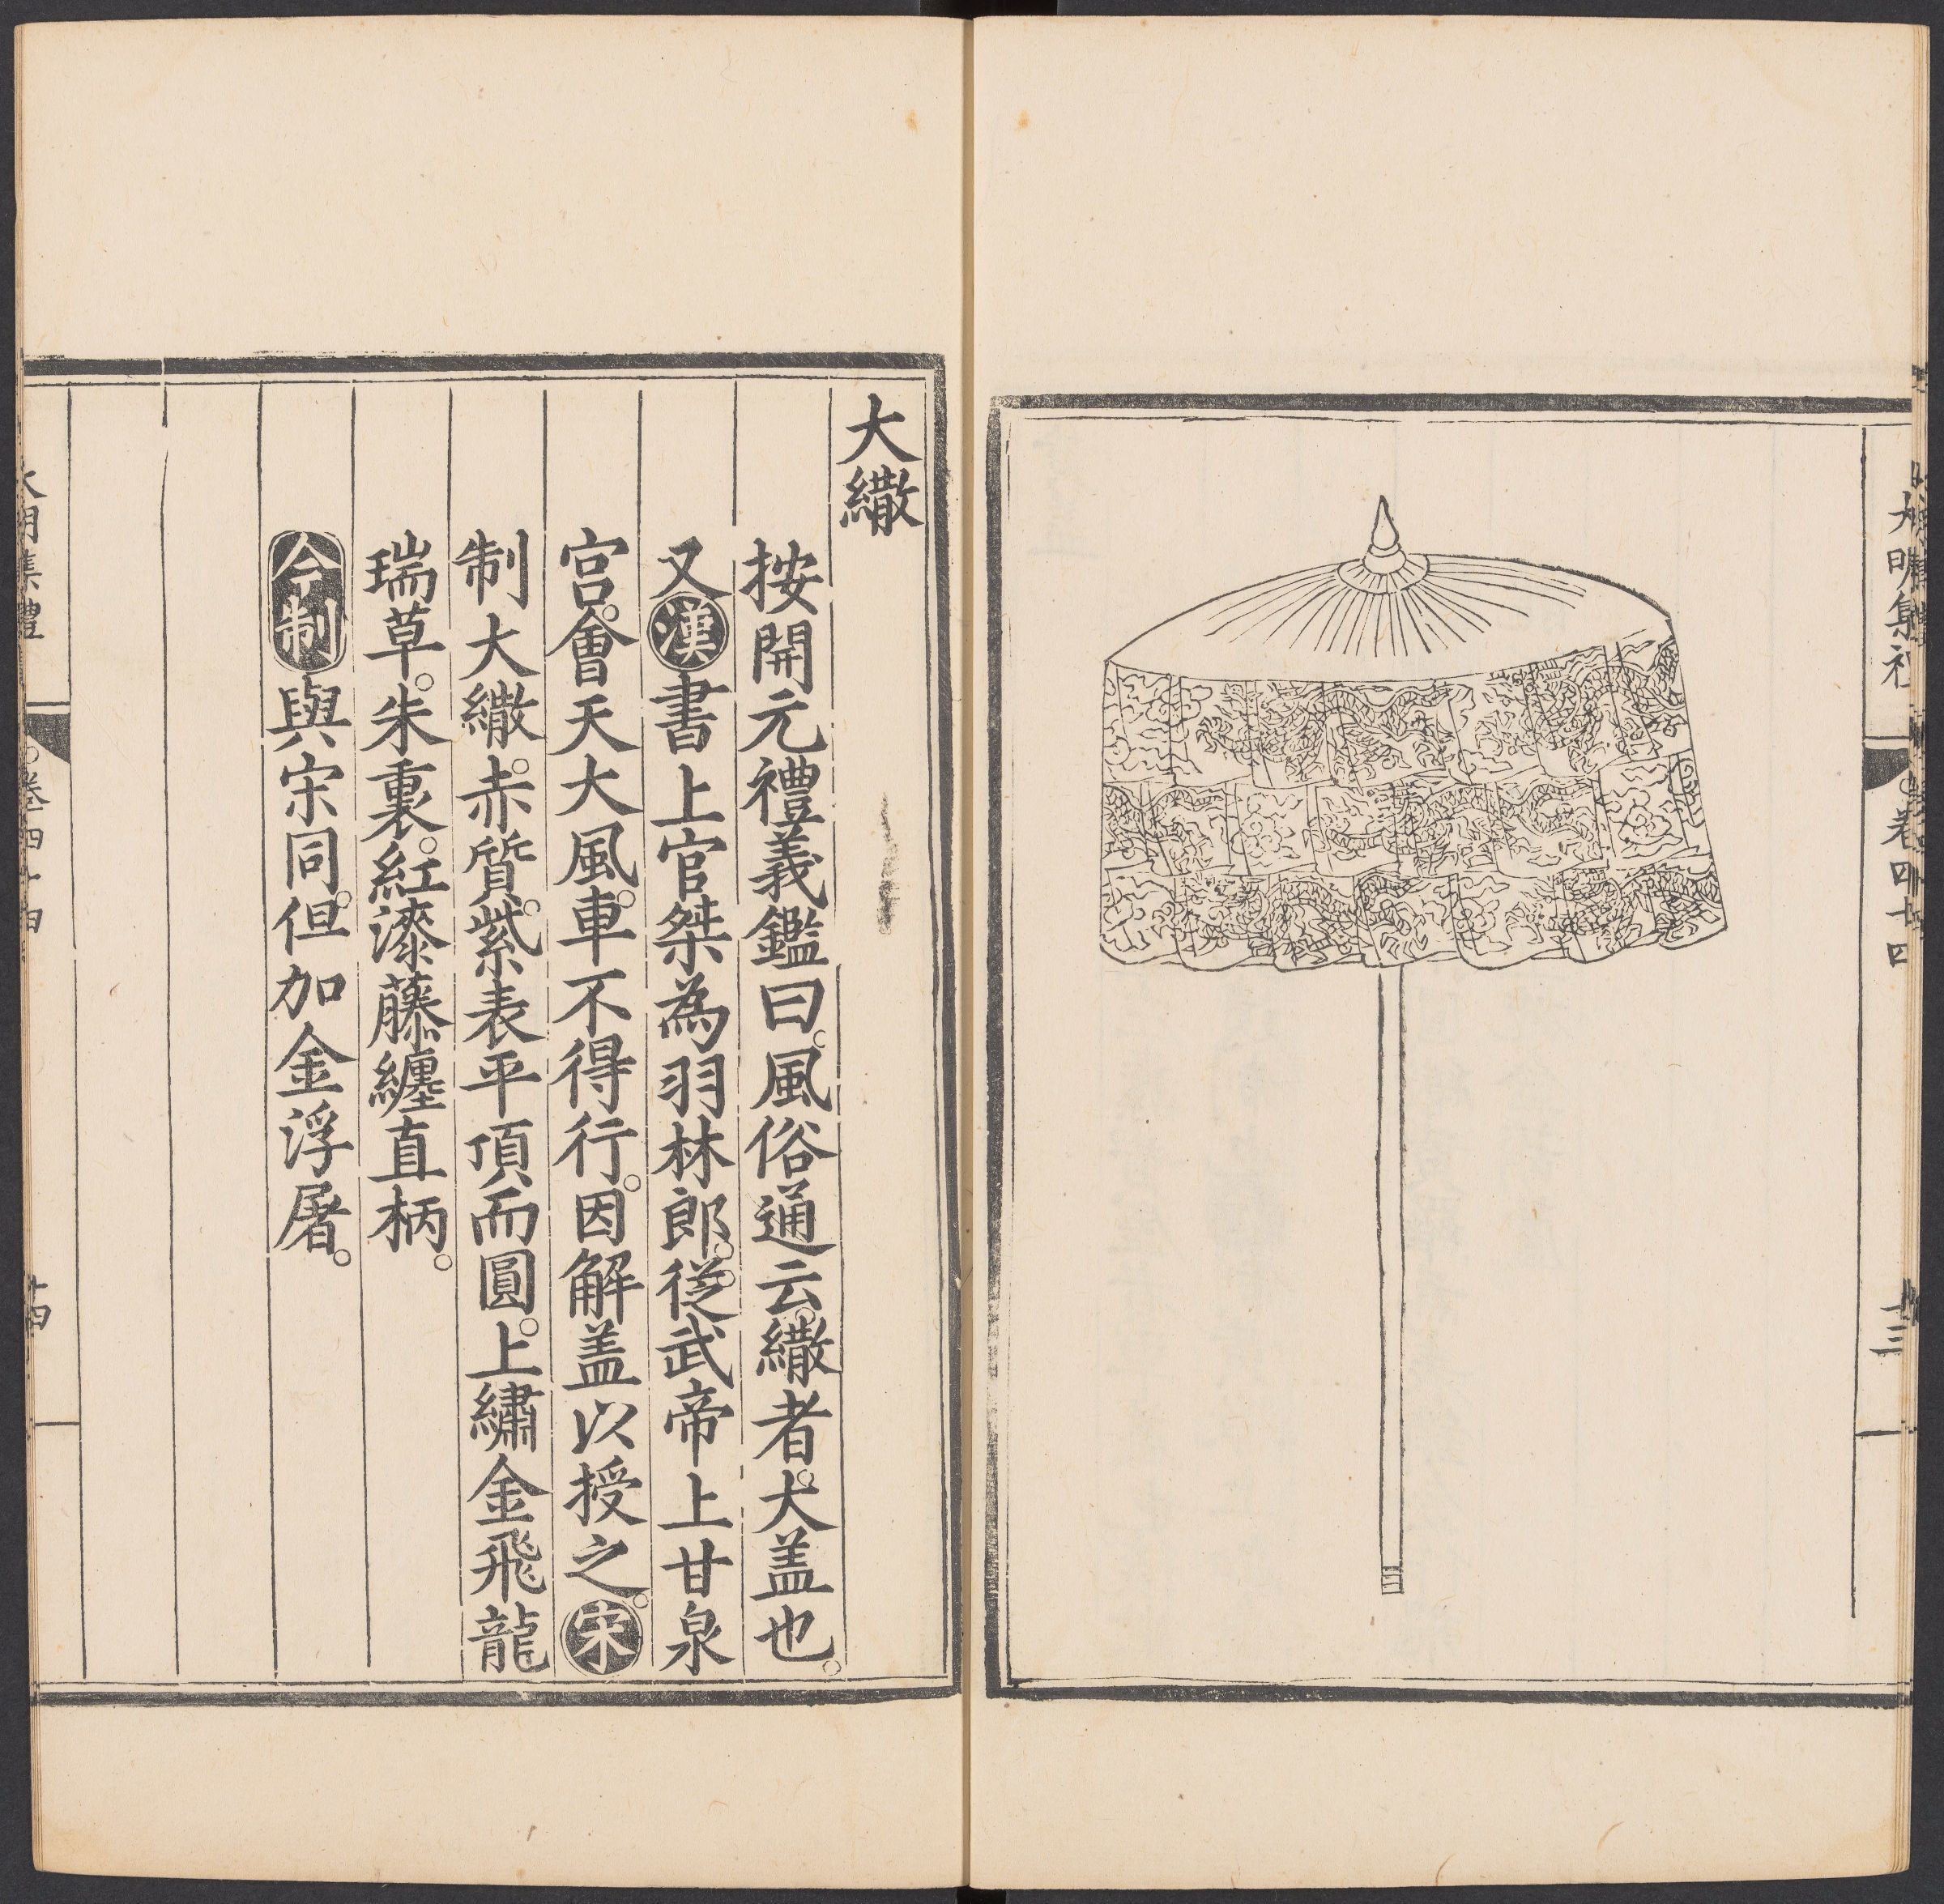 大明集礼
卷四十四
十三
大繖
按開元禮義鑑曰。風俗通云。繖者。大盖也。
又漢書上官桀為羽林郎。從武帝上甘泉
宮。會天大風。車不得行。因解盖以授之。宋
制大繖。赤質。紫表平頂而圓。上繡金飛龍
瑞草。朱裏。紅漆藤纏直柄。
今制與宋同。但加金浮屠。
大明集禮
卷四十四
十四